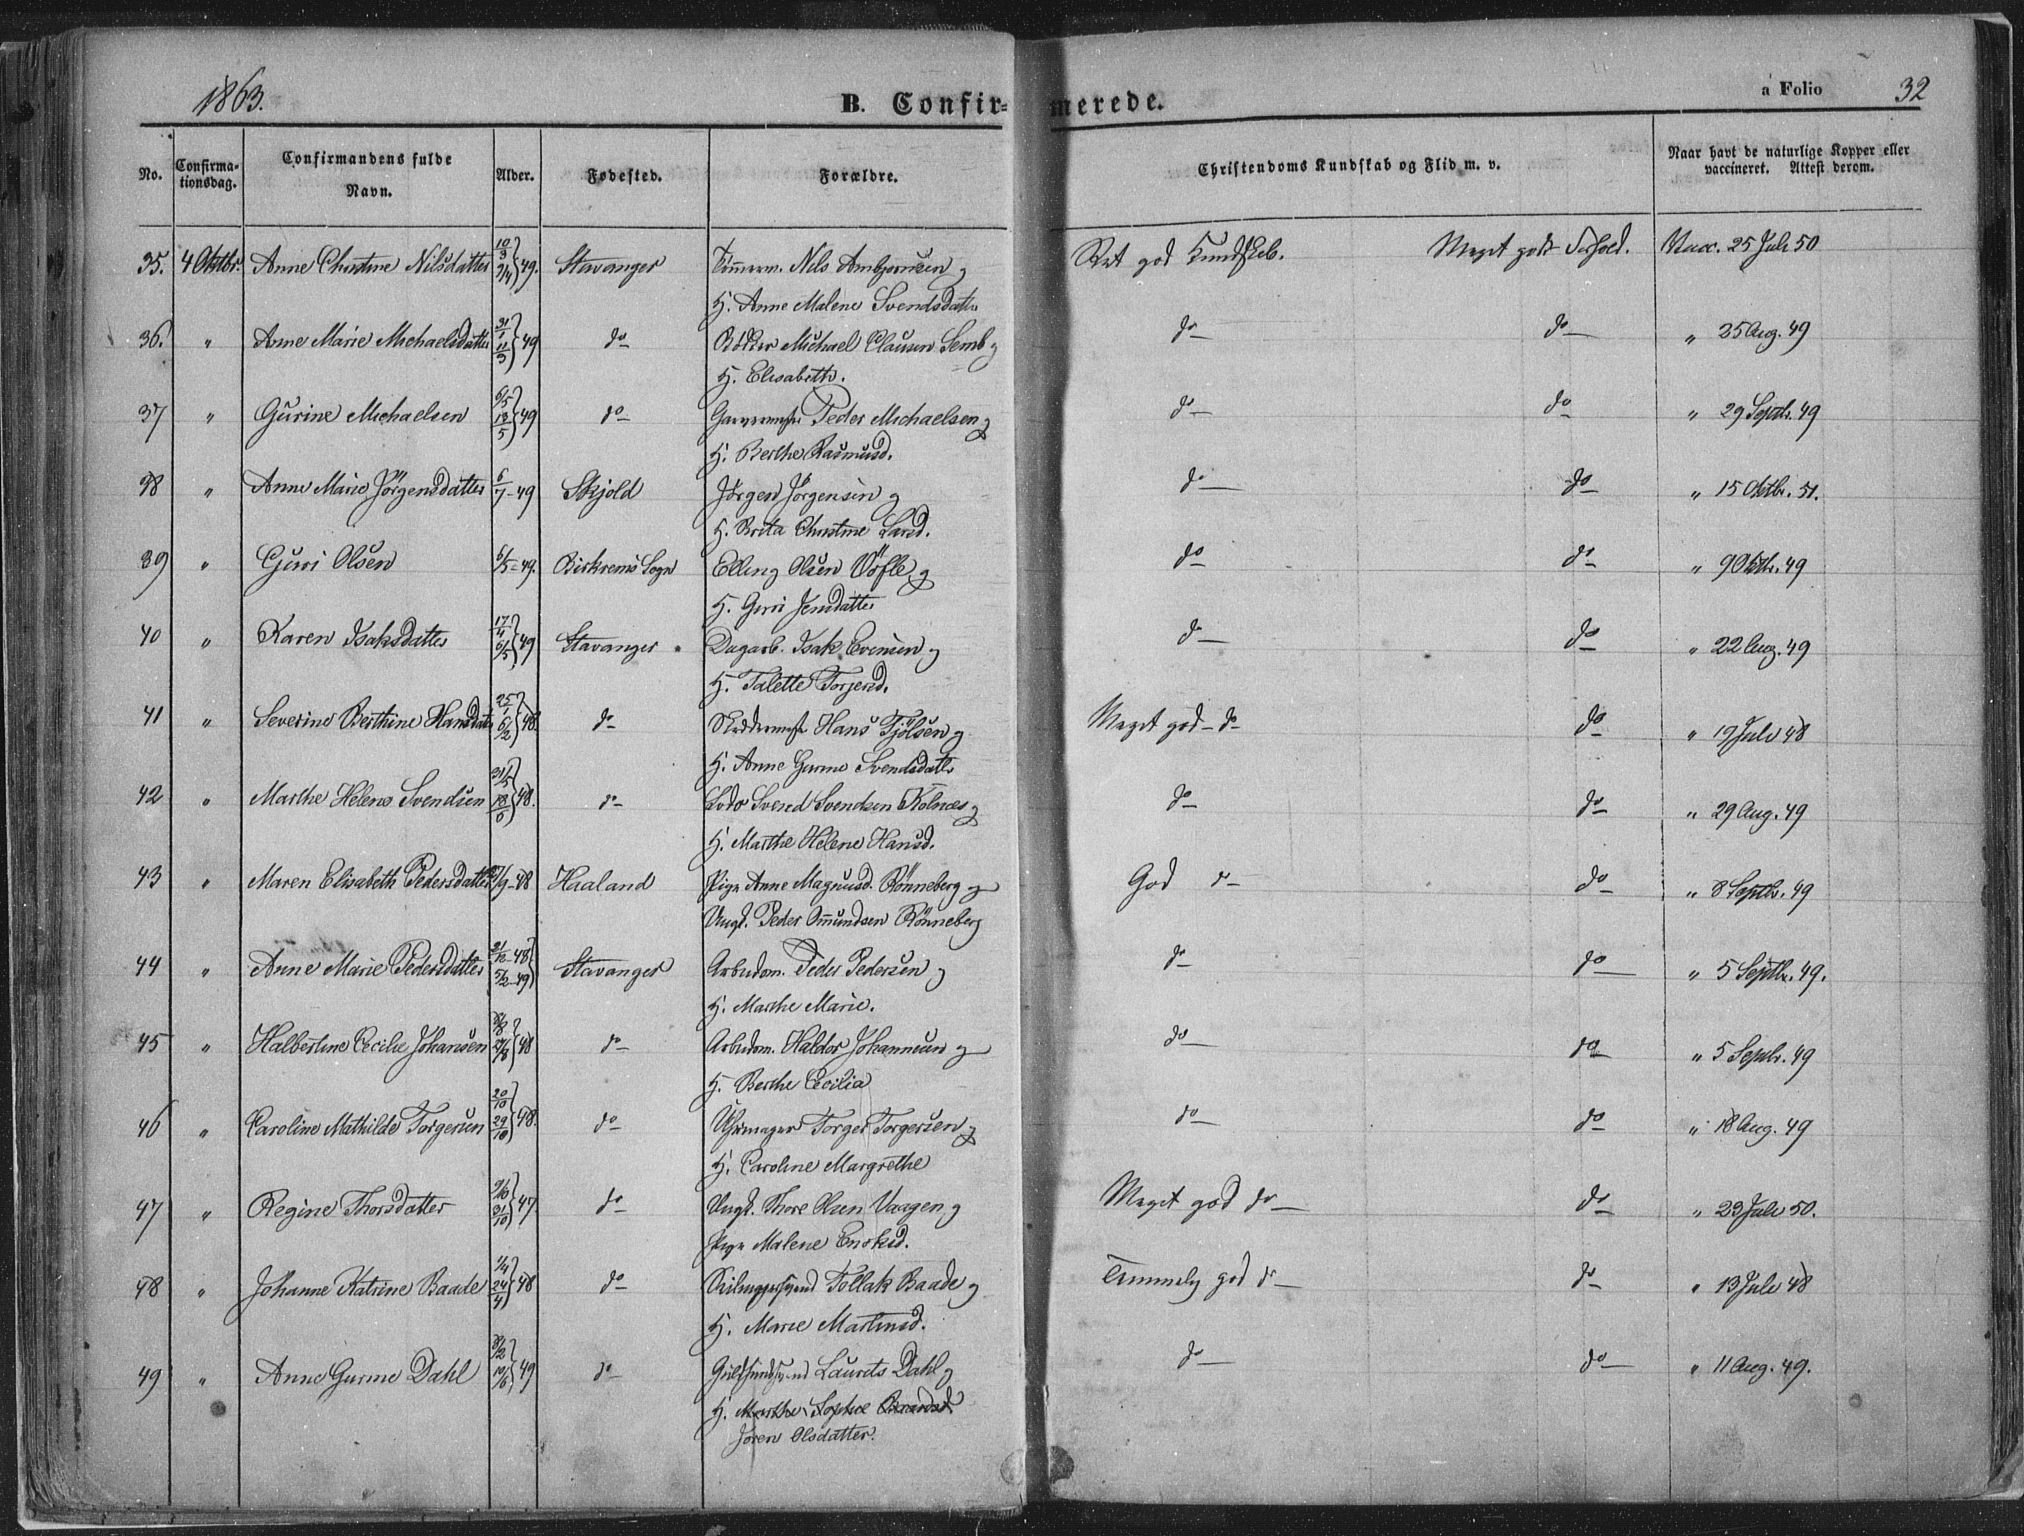 1863.
B. Confirmerede.
a Folio 32
No. Confirmationsdag. Confirmandens fulde Navn. Alder. Fødested. Forældre. Christendoms Kundskab og Flid m. v. Naar havt de naturlige Kopper eller vaccineret. Attest derom.
35. 4 Oktbr. Anne Christine Nilsdatter 49. Stavanger Tømmerm. Nils Ambjørnsen og Ret god Kundskab. Meget godt Forhold. Vacc. 25 Juli 50
H. Anne Malene Svendsdatter
36. " Anne Marie Michaelsdatter 31/1 11/3 } 49 do Bødker Michael Clausen Semb og do do " 25 Aug. 49
H. Elisabeth.
37 " Gurine Michaelsen 6/5 13/5 } 49 do Peder Michaelsen og do do " 29 Septbr. 49
H. Berthe Rasmusd.
38 " Anne Marie Jörgensdatter 6/7 - 49 Skjold Jörgen Jörgensen og do do " 15 Oktbr. 51.
H. Brita Christine Larsd.
39 " Guri Olsen 6/5 - 49. Birkrems Sogn Elling Olsen og do do " 9 Oktbr. 49
H. Guri Jensdatter
40 " Karen Isaksdatter 17/4 6/5 } 49 Stavanger Dagarb. Isak Evensen og do do " 22 Aug. 49
H. Talette Torjersd.
41 " Severine Berthine Hansdatter 25/1 6/2 } 48. do Skreddermest. Hans Tjölsen og Meget god do do " 19 Juli 48
H. Anne Gurine Svendsdatter
42 " Marthe Helene Svendsen 48. do Lods Svend Svendsen Kolnæs og do do " 29 Aug. 49
H. Marthe Helene Hansd.
43 " Maren Elisabeth Pedersdatter 48 Haaland Pige Anne Magnusd. Rönneberg og God do do " 8 Septbr. 49
Ungk. Peder Omundsen Rönneberg
44 " Anne Marie Pedersdatter 21/12 - 48 5/2 - 49 } Stavanger Arbeidsm. Peder Pedersen og do do " 5 Septbr. 49.
H. Marthe Marie.
45 " Halbertine Cecilie Johansen 48 do Arbeidsm. Haldor Johannesen og do do " 5 Septbr. 49
H. Berthe Cecilia
46 " Caroline Mathilde Torgersen 20/10 29/10 } 48. do Uhrmager Torger Torgersen og do do " 18 Aug. 49
H. Caroline Margrethe
47 " Regine Thorsdatter 31/10 } 47. do Ungk. Thore Olsen Vaagen og Meget god do do " 23 Juli 50.
Pige Malene Enoksd.
48 " Johanne Katrine Baade 24/4 } 48 do Tollak Baade og Temmelig god do do " 13 Juli 48
H. Marie Martinsd.
49 " Anne Gurine Dahl 49 do Guldsmedsvend Laurits Dahl og do do " 11 Aug. 49.
H. Marthe Sophie
Joren Olsdatter.